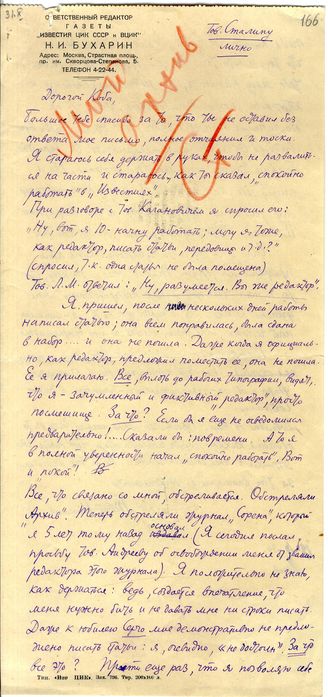 31.X
166
ОТВЕТСТВЕННЫЙ РЕДАКТОР
ГАЗЕТЫ
„ИЗВЕСТИЯ ЦИК СССР и ВЦИК"
Н. И. БУХАРИН
Адрес: Москва, Страстная площ.,
пр. им. Скворцова-Степанова, 5.
ТЕЛЕФОН 4-22-44.
Тов. Сталину
лично
Мой архив
Дорогой Коба,
Большое тебе спасибо за то, что ты не оставил без
ответа мое письмо, полное отчаяния и тоски.
Я стараюсь себя держать в руках, чтобы не развалить-
ся на части и стараюсь, как ты сказал, „спокойно
работать" в „Известиях".
При разговоре с тов. Кагановичем я спросил его:
„Ну, вот, я 10-начну работать; могу я, тоже,
как редактор, писать статьи, передовицы и т.д.?"
(спросил, т.к. одна статья не была помещена)
Тов. Л.М. ответил: „Ну, разумеется. Вы же редактор".
Я пришел, после нескольких дней работы
написал статью; она всем понравилась, была сдана
в набор.... и она не пошла. Даже когда я официаль-
но, как редактор, предложил поместить ее, она не пошла.
Ее я прилагаю. Все, вплоть до рабочих типографии, видят,
что я - зачумленный и фиктивный „редактор", просто
посмешище. За что? Если бы я еще не осведомился
предварительно!... Сказали бы: повремени. А то я
в полной уверенности начал „спокойно работать", Вот
и покой!
Все, что связано со мной, обстреливается. Обстреляли
„Архив". Теперь обстреляли журнал „Сорена", который
я 5 лет тому назад основал (Я сегодня писал
просьбу тов. Андрееву об освобождении меня от звания
редактора этого журнала). Я положительно не знаю,
как держаться: ведь, создается впечатление, что
меня нужно бить и не давать мне ни строки писать.
Даже к юбилею Серго мне демонстративно не предло-
жено писать статьи: я, очевидно, „не достоин". За что
все это? Прости еще раз, что я позволяю себе
Тип. «Изв ЦИК» Зак.